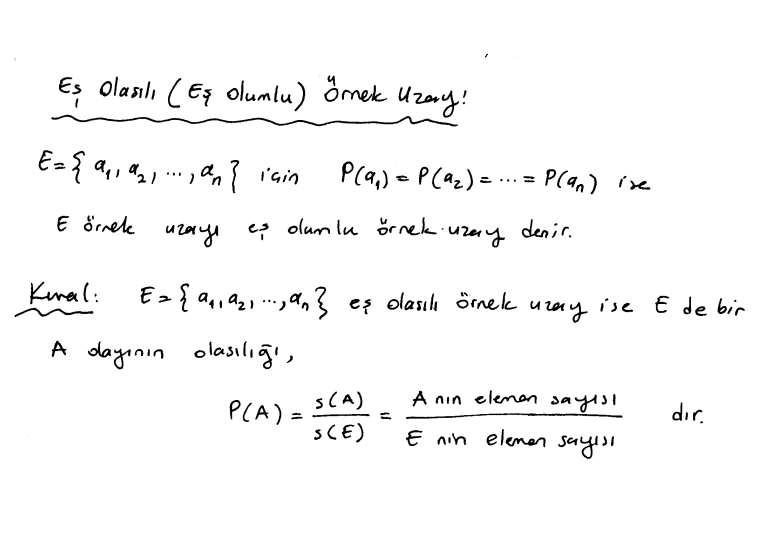 Eş Olasılı (Eş olumlu) Örnek Uzay!
E={a₁, a₂, ..., aₙ} için P(a₁) = P(a₂) = ... = P(aₙ) ise
E örnek uzayı eş olumlu örnek uzay denir.
Kural: E={a₁, a₂, ..., aₙ} eş olasılı örnek uzay ise E de bir
A olayının olasılığı,
P(A) = s(A)/s(E) = A nın eleman sayısı / E nin eleman sayısı dır.